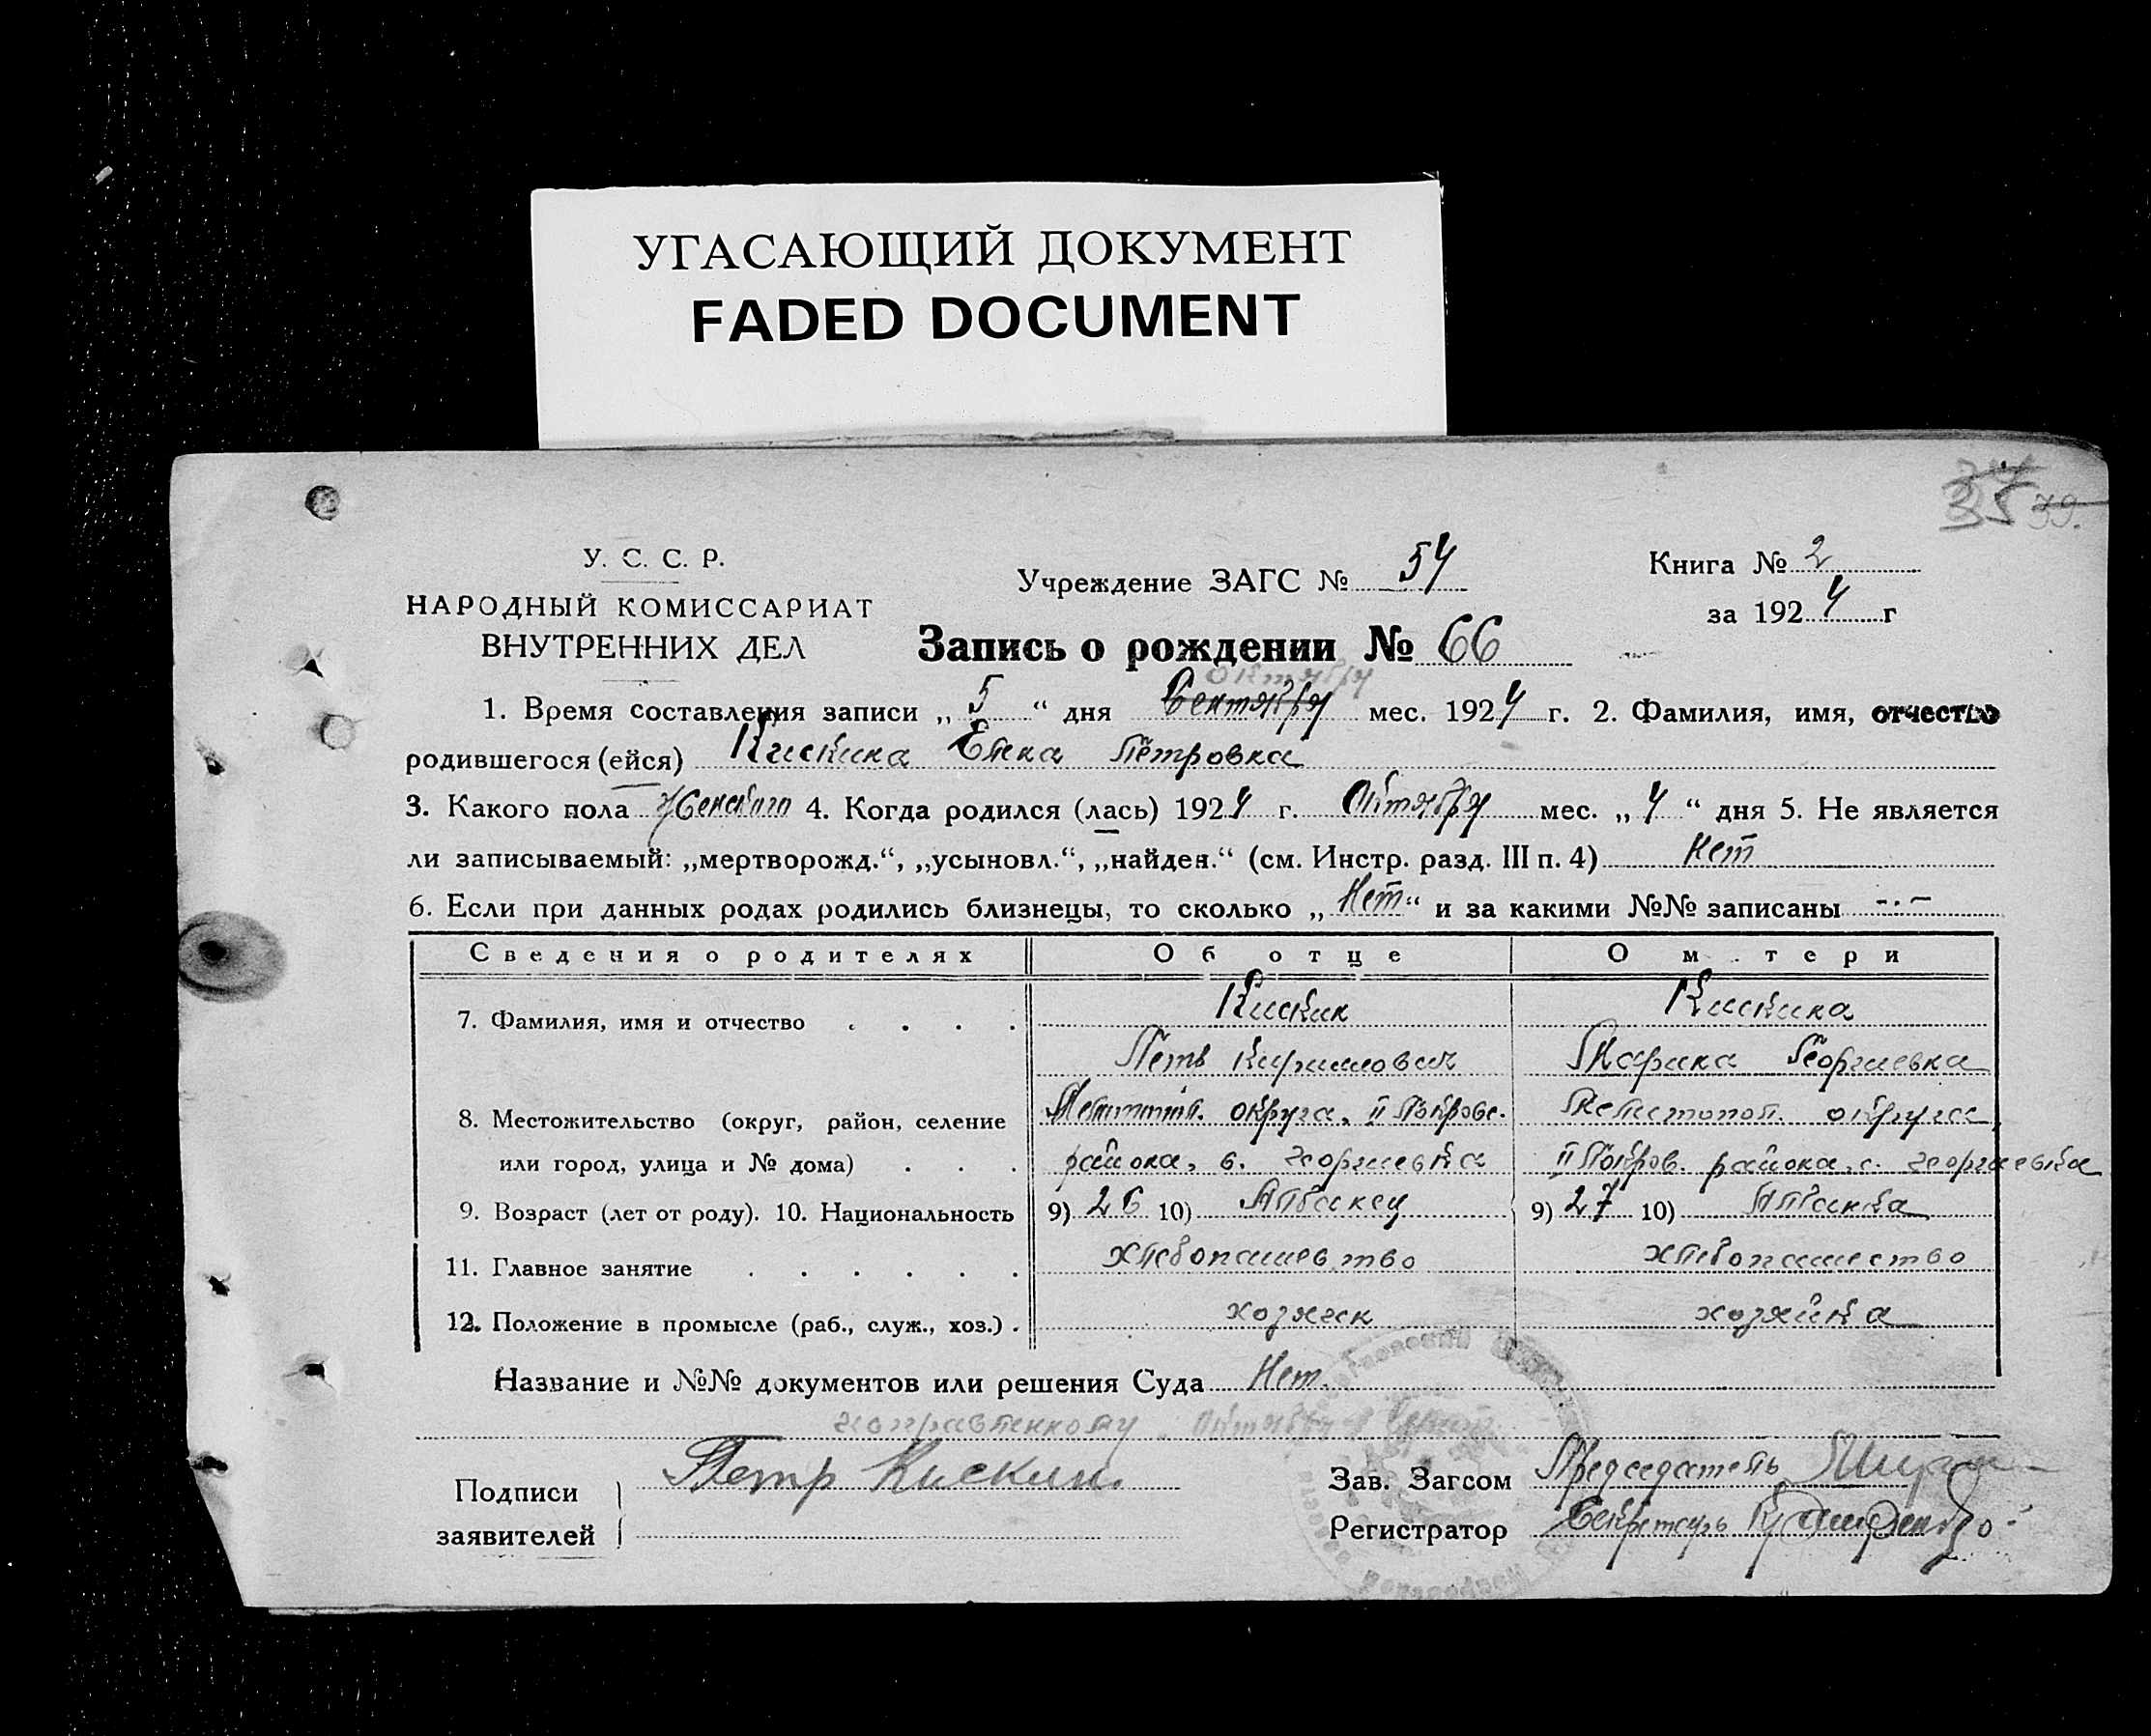 УГАСАЮЩИЙ ДОКУМЕНТ
FADED DOCUMENT
35 39.
У. С. С. Р.
НАРОДНЫЙ КОМИССАРИАТ
ВНУТРЕННИХ ДЕЛ
Учреждение ЗАГС № 54
Книга № 2
за 1924 г
Запись о рождении № 66
Октября
1. Время составления записи „ 5 “ дня Сентября мес. 1924 г. 2. Фамилия, имя, отчество
родившегося (ейся) Кискина Елена Петровна
3. Какого пола Женского 4. Когда родился (лась) 1924 г. Октября мес. „ 4 “ дня 5. Не является
ли записываемый: „мертворожд.“, „усыновл.“, „найден.“ (см. Инстр. разд. III п. 4) Нет
6. Если при данных родах родились близнецы, то сколько „ Нет “ и за какими №№ записаны -.-
Сведения о родителях Об отце О м.тери
7. Фамилия, имя и отчество . . . . Кискин Кискина
Петр Кириллович Марина Георгиевна
8. Местожительство (округ, район, селение Мелитоп. округа, II Покров. Мелитопол. округа,
или город, улица и № дома) . . . района, с. Георгиевка II Покров. района, с. Георгиевка
9. Возраст (лет от роду). 10. Национальность 9) 26 10) Албанец 9) 27 10) Албанка
11. Главное занятие . . . . . . хлебопашество хлебопашество
12. Положение в промысле (раб., служ., хоз.) . хозяин хозяйка
Название и №№ документов или решения Суда Нет.
исправленному Октября
Подписи заявителей Петр Кискин.
Зав. Загсом Председатель
Регистратор Секретарь